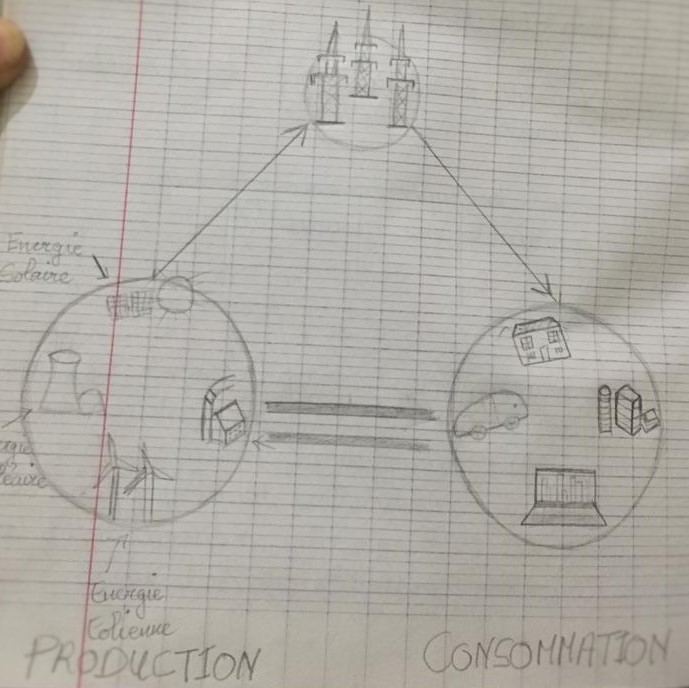 Energie
Solaire
Energie
Eolienne
PRODUCTION
CONSOMMATION